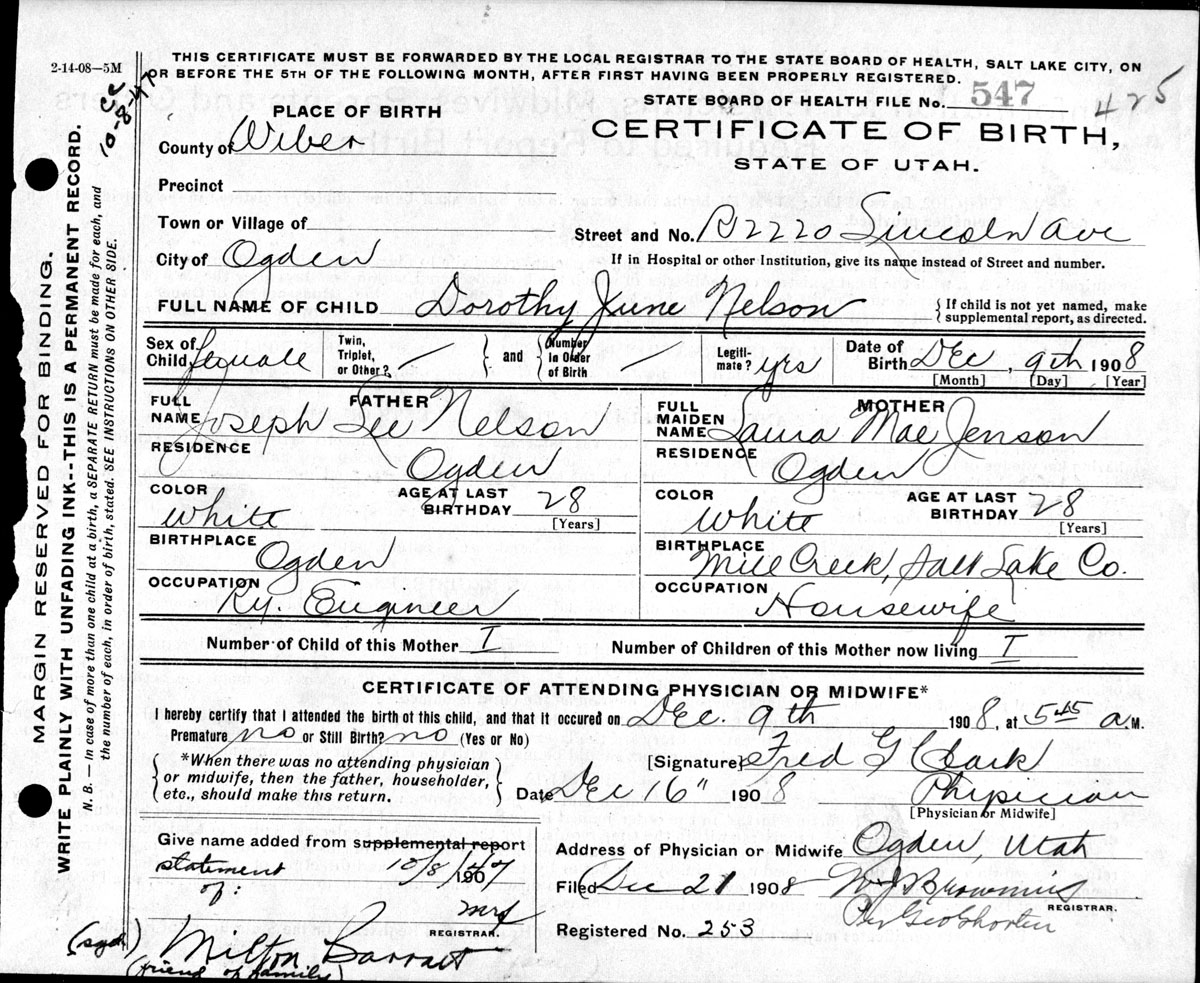 2-14-08—5M
THIS CERTIFICATE MUST BE FORWARDED BY THE LOCAL REGISTRAR TO THE STATE BOARD OF HEALTH, SALT LAKE CITY, ON
OR BEFORE THE 5TH OF THE FOLLOWING MONTH, AFTER FIRST HAVING BEEN PROPERLY REGISTERED.
STATE BOARD OF HEALTH FILE No. 547
425
CERTIFICATE OF BIRTH,
STATE OF UTAH.
PLACE OF BIRTH
County of Wiber
Precinct
Town or Village of
City of Ogden
Street and No. R2220 Lincoln Ave
If in Hospital or other Institution, give its name instead of Street and number.
FULL NAME OF CHILD Dorothy June Nelson
{If child is not yet named, make
supplemental report, as directed.
Sex of Child female
Twin, Triplet, or Other? —
and
Number in Order of Birth —
Legitimate? yrs
Date of Birth Dec, 9th 1908
[Month] [Day] [Year]
FATHER
FULL NAME Joseph Lee Nelson
RESIDENCE Ogden
COLOR White
AGE AT LAST BIRTHDAY 28
[Years]
BIRTHPLACE Ogden
OCCUPATION Ry. Engineer
MOTHER
FULL MAIDEN NAME Laura Mae Jenson
RESIDENCE Ogden
COLOR White
AGE AT LAST BIRTHDAY 28
[Years]
BIRTHPLACE Mill Creek, Salt Lake Co.
OCCUPATION Housewife
Number of Child of this Mother I
Number of Children of this Mother now living I
CERTIFICATE OF ATTENDING PHYSICIAN OR MIDWIFE*
I hereby certify that I attended the birth of this child, and that it occured on Dec. 9th 1908, at 5 45 a M.
Premature? no or Still Birth? no (Yes or No)
*When there was no attending physician
or midwife, then the father, householder,
etc., should make this return.
[Signature] Fred G Clark
Date Dec 16" 1908
Physician
[Physician or Midwife]
Give name added from supplemental report
statement 10/8/1947
of:
mrs
REGISTRAR.
(sgd) Milton Barratt
(friend of family)
Address of Physician or Midwife Ogden, Utah
Filed Dec 21 1908 W J Browning
REGISTRAR.
Per Geo Shorten
Registered No. 253
MARGIN RESERVED FOR BINDING.
WRITE PLAINLY WITH UNFADING INK--THIS IS A PERMANENT RECORD.
N. B. — In case of more than one child at a birth, a SEPARATE RETURN must be made for each, and
the number of each, in order of birth, stated. SEE INSTRUCTIONS ON OTHER SIDE.